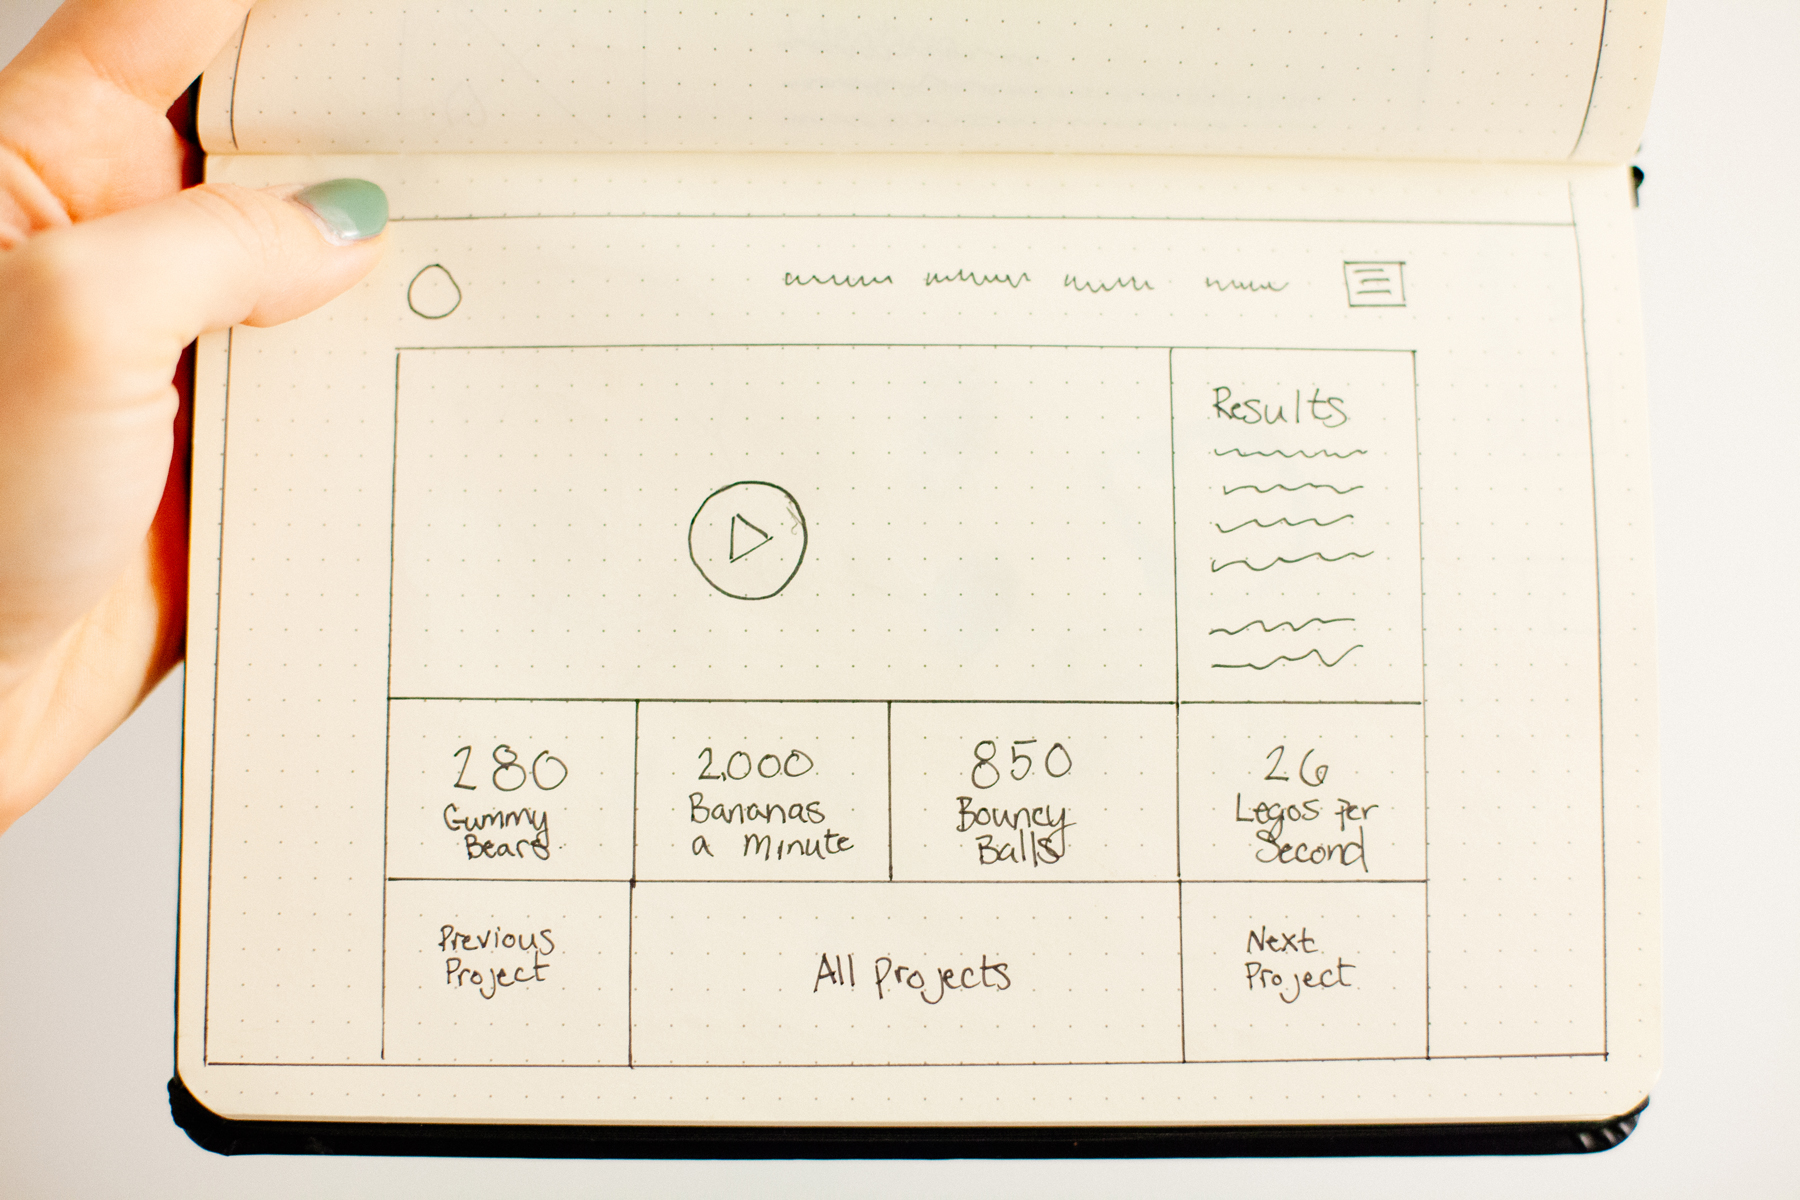 Results
280
Gummy
Bears
2,000
Bananas
a minute
850
Bouncy
Balls
26
Legos per
Second
Previous
Project
All projects
Next
Project